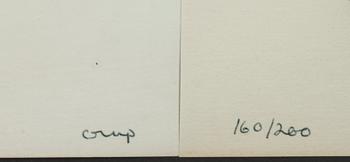 comp
160/200